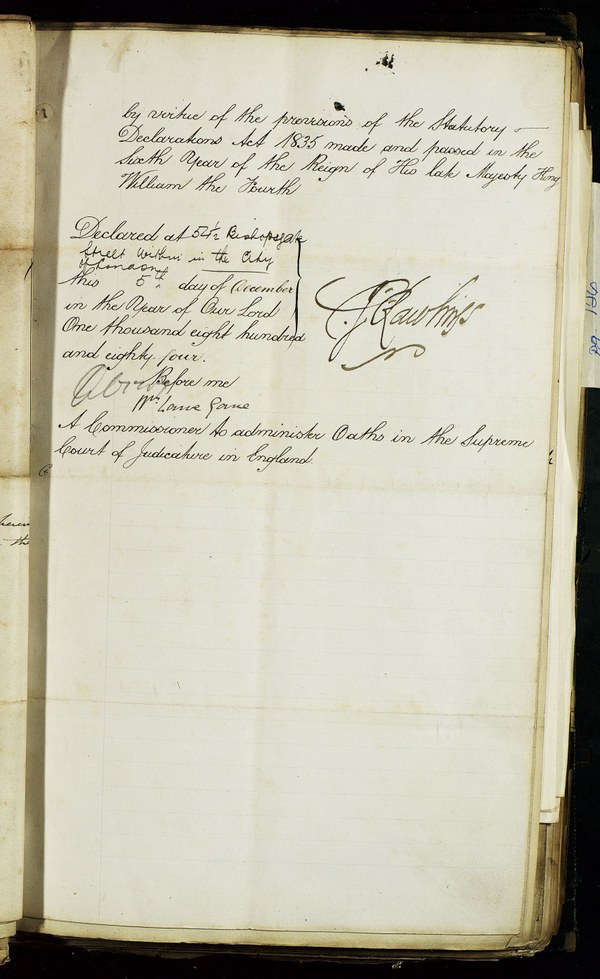 by virtue of the provisions of the Statutory
Declarations Act 1835 made and passed in the
Sixth Year of the Reign of His late Majesty King
William the Fourth
Declared at 54½ Bishopsgate
Street Within in the City
of London
this 5th day of December
in the Year of Our Lord
One thousand eight hundred
and eighty four.
J Rawlings
Before me
Wm Lane
A Commissioner to administer Oaths in the Supreme
Court of Judicature in England.